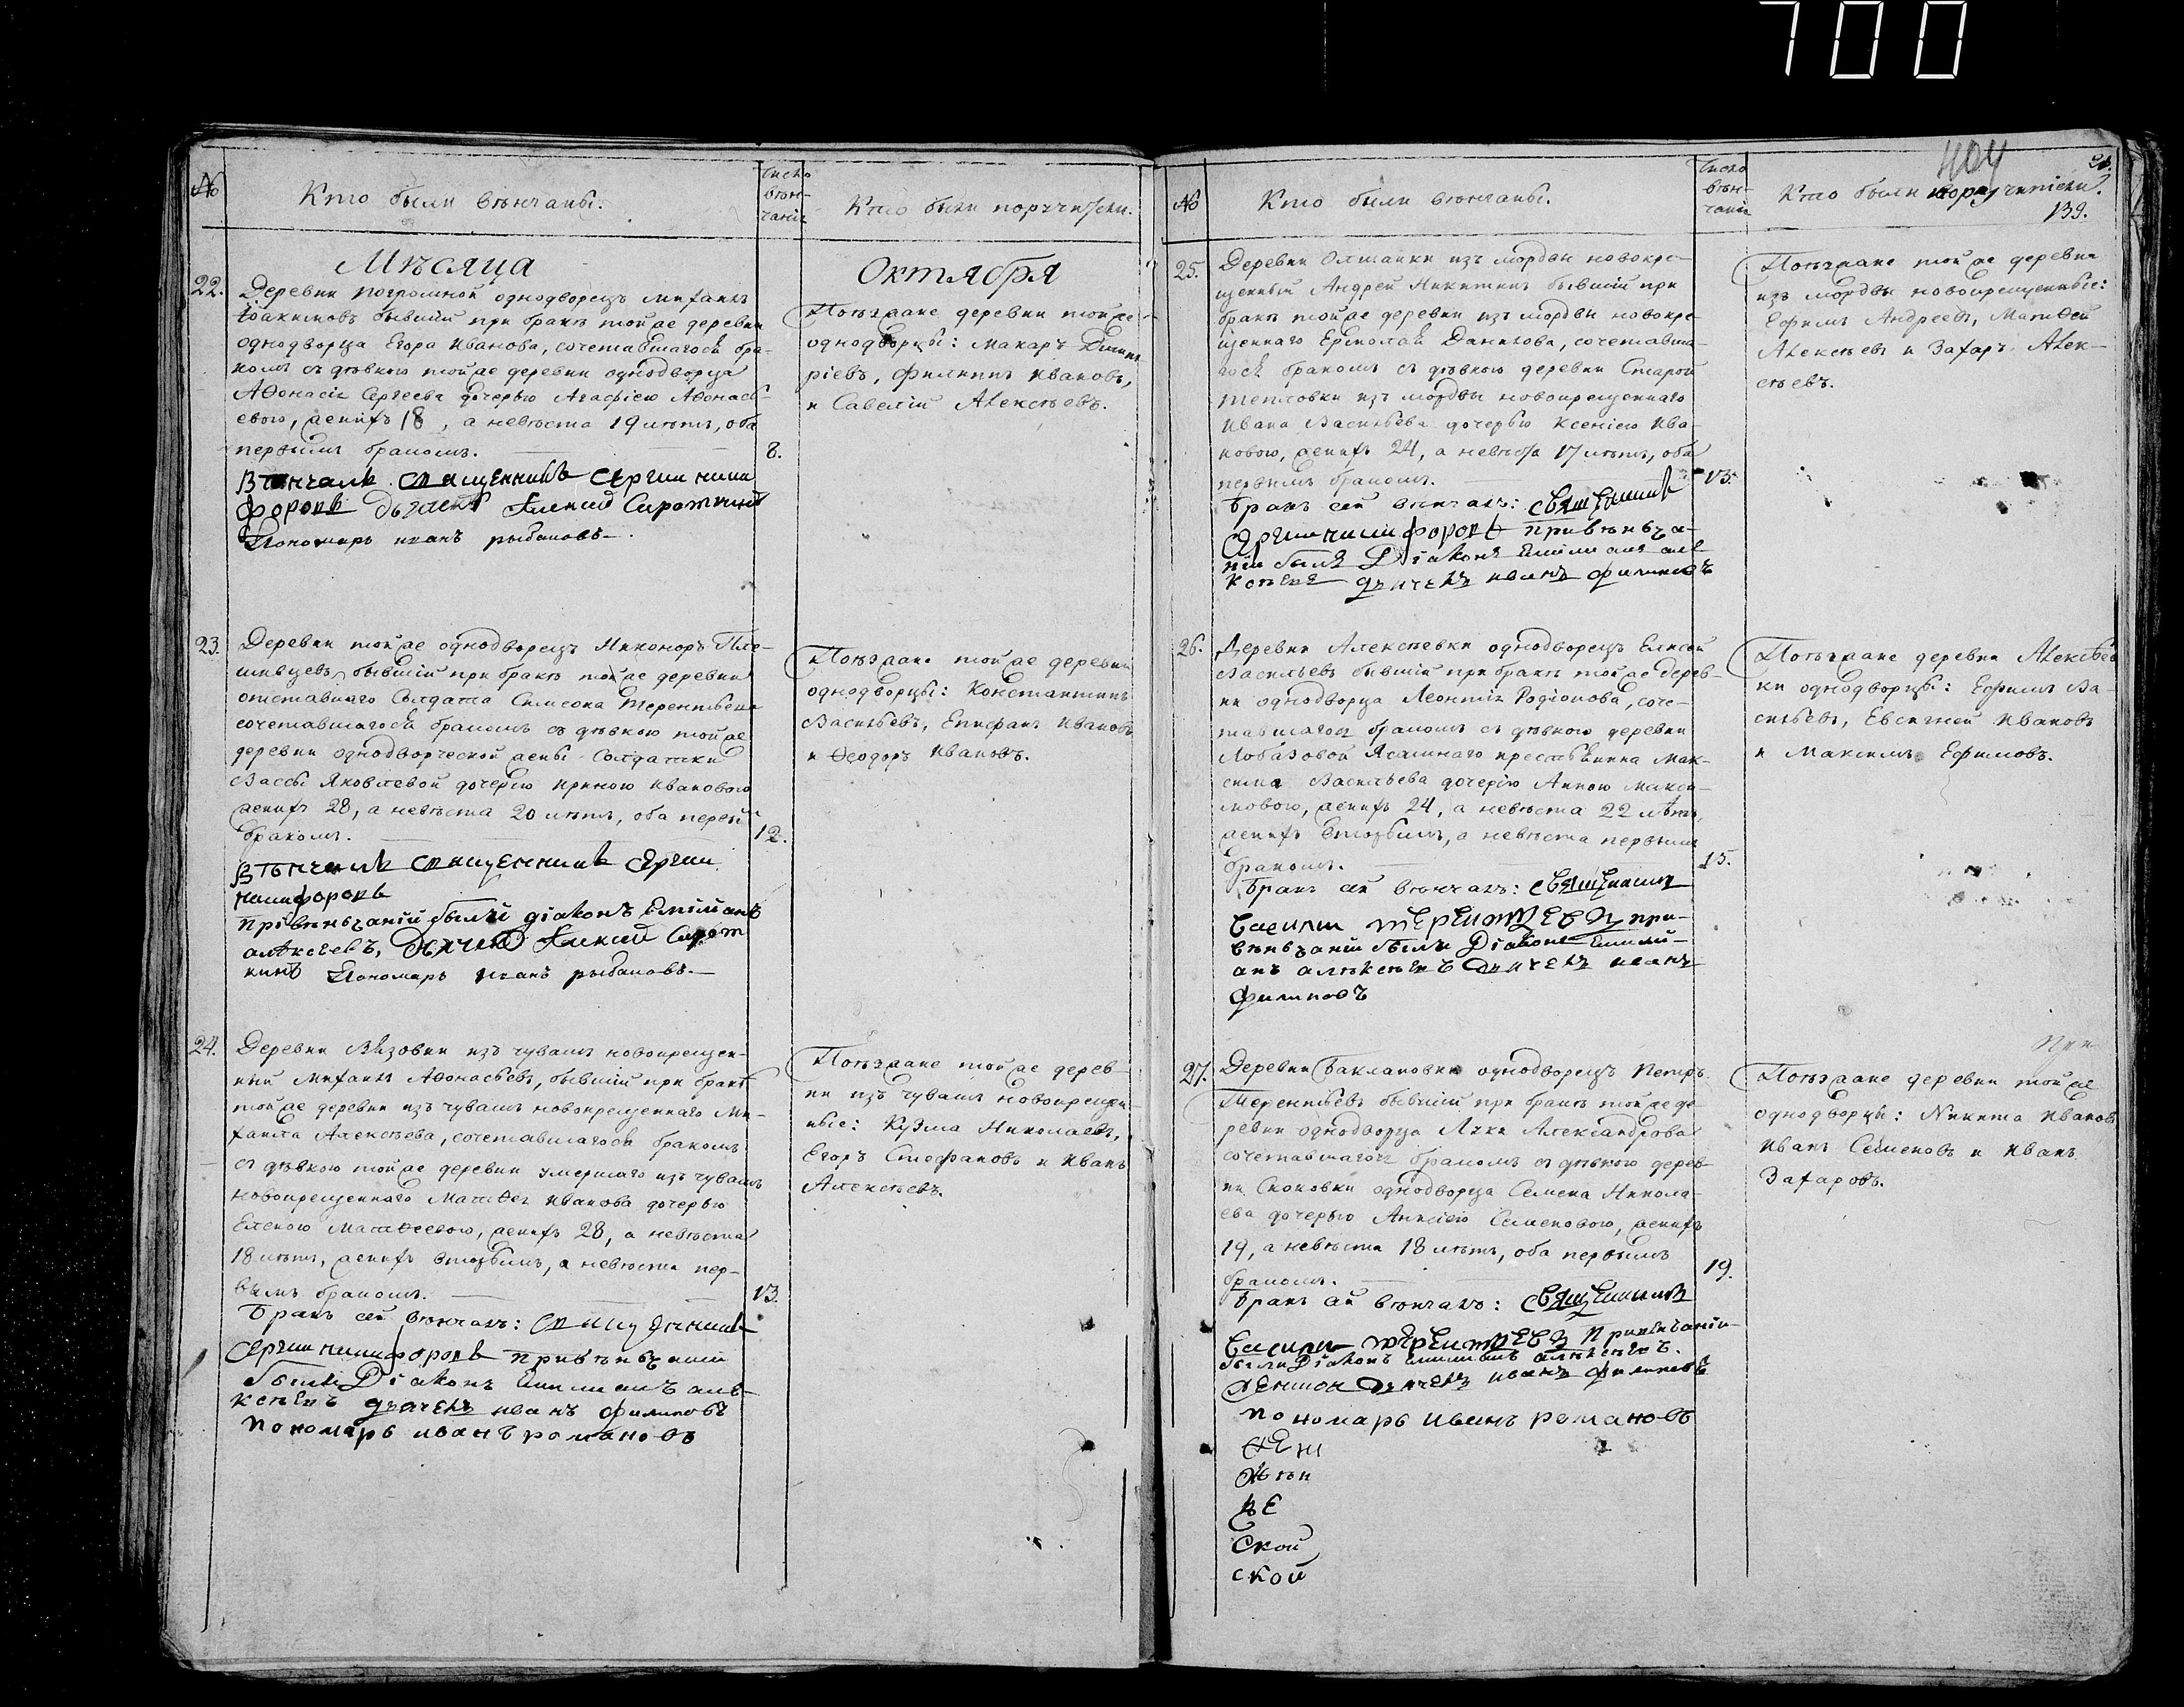 700
№
Кто были вѣнчаны.
Число
вѣн-
чанія
Кто были поручители.
Мѣсяца
Октября
22.
Деревни Погромной однодворецъ Михаилъ
Іоакимовъ бывшій при бракѣ той же деревни
однодворца Егора Иванова, сочетавшагося бра-
комъ съ дѣвкою той же деревни однодворца
Афонасія Сергеева дочерью Агафіею Афонась-
евою, жених 18, а невѣста 19 лѣтъ, оба
первымъ бракомъ.
8.
Вѣнчалъ священникъ Сергий Ники
форовъ дьячекъ Алексий Сироткинъ
Пономарь иванъ рыбаковъ.
Поѣзжане деревни той же
однодворцы: Макаръ Дмит
ріевъ, Филиппъ Ивановъ,
и Савелій Алексѣевъ.
23.
Деревни той же однодворецъ Никоноръ Пле-
шивцевъ, бывшій при бракѣ той же деревни
отставнаго Солдата Симеона Терентьева
сочетавшагося бракомъ съ дѣвкою той же
деревни однодворческой жены Солдатки
Вассы Яковлевой дочерью Ириною Ивановою
жених 28, а невѣста 20 лѣтъ, оба первы
бракомъ.
12.
Вѣнчалъ священникъ Сергии
никифоровъ
при вѣньчаніи были діаконъ Емиліанъ
алѣксѣевъ, Дьячекъ Алексий Сирот
кинъ Пономарь иванъ рыбаковъ.
Поѣзжане той же деревни
однодворцы: Константинъ
Васильевъ, Епифанъ Ивановъ
и Ѳеодоръ Ивановъ.
24.
Деревни Вязовки изъ чувашъ новокрещен-
ный Михаилъ Афонасьевъ, бывшій при бракѣ
той же деревни изъ чувашъ новокрещеннаго Ми-
хаила Алексѣева, сочетавшагося бракомъ
съ дѣвкою той же деревни умершаго изъ чувашъ
новокрещеннаго Матвея Иванова дочерью
Еленою Матвеевою, жених 28, а невѣста
18 лѣтъ, жених вторымъ, а невѣста пер-
вымъ бракомъ.
13.
Бракъ сей вѣнчалъ: священникъ
Сергии никифоровъ при вѣньчании
были Діаконъ Емилианъ алѣ-
ксѣевъ дьячекъ иванъ филиповъ
пономарь иванъ романовъ
Поѣзжане той же дерев-
ни изъ чувашъ новокрещен-
ные: Кузма Николаевъ,
Егоръ Стефановъ и Иванъ
Алексѣевъ.
404
139.
№
Кто были вѣнчаны.
Число
вѣн-
чанія
Кто были поручители.
25.
Деревни Олшанки изъ мордвы новокре-
щенный Андрей Никитинъ бывшій при
бракѣ той же деревни изъ мордвы новокре
щеннаго Ермолая Данилова, сочетавша-
гося бракомъ съ дѣвкою деревни Старой
Тепловки изъ мордвы новокрещеннаго
Ивана Васильева дочерью Ксеніею Ива-
новою, жених 24, а невѣста 17 лѣтъ, оба
первымъ бракомъ.
13.
Бракъ сей вѣнчалъ: священникъ
Сергии никифоровъ при вѣньча-
нии былъ Діаконъ Емилианъ алѣ
ксѣевъ дьячекъ иванъ филиповъ
Поѣзжане той же деревни
изъ мордвы новокрещенные:
Ефимъ Андреевъ, Матвей
Алексѣевъ и Захаръ Алек-
сѣевъ.
26.
Деревни Алексѣевки однодворецъ Елисей
Васильевъ бывшій при бракѣ той же дерев-
ни однодворца Леонтія Родіонова, соче-
тавшагося бракомъ съ дѣвкою деревни
Лобазовой Ясашнаго крестьянина Мак-
сима Васильева дочерію Анною Макси-
мовою, жених 24, а невѣста 22 лѣтъ,
жених вторымъ, а невѣста первымъ
бракомъ.
15.
Бракъ сей вѣнчалъ: священникъ
Василии терентьевъ при-
вѣнчании были Діаконъ Емили-
анъ алѣксѣевъ Дьячекъ иванъ
филиповъ
Поѣзжане деревни Алексѣев
ки однодворцы: Ефимъ Ва-
сильевъ, Евсигней Ивановъ
и Максимъ Ефимовъ.
27.
Деревни Баклановки однодворецъ Петръ
Терентьевъ бывшій при бракѣ той же де
ревни однодворца Луки Александрова
сочетавшагося бракомъ съ дѣвкою дерев-
ни Скоковки однодворца Семена Никола-
ева дочерью Анисіею Семеновою, жених
19, а невѣста 18 лѣтъ, оба первымъ
бракомъ.
19.
Бракъ сей вѣнчалъ: священникъ
Василии терентьевъ При вѣнчании
были Діаконъ Емилианъ алѣксѣевъ.
Дьячекъ иванъ филиповъ
пономарь иванъ романовъ
ской
ской
Поѣзжане деревни той же
однодворцы: Никита Ивановъ
Иванъ Семеновъ и Иванъ
Захаровъ.